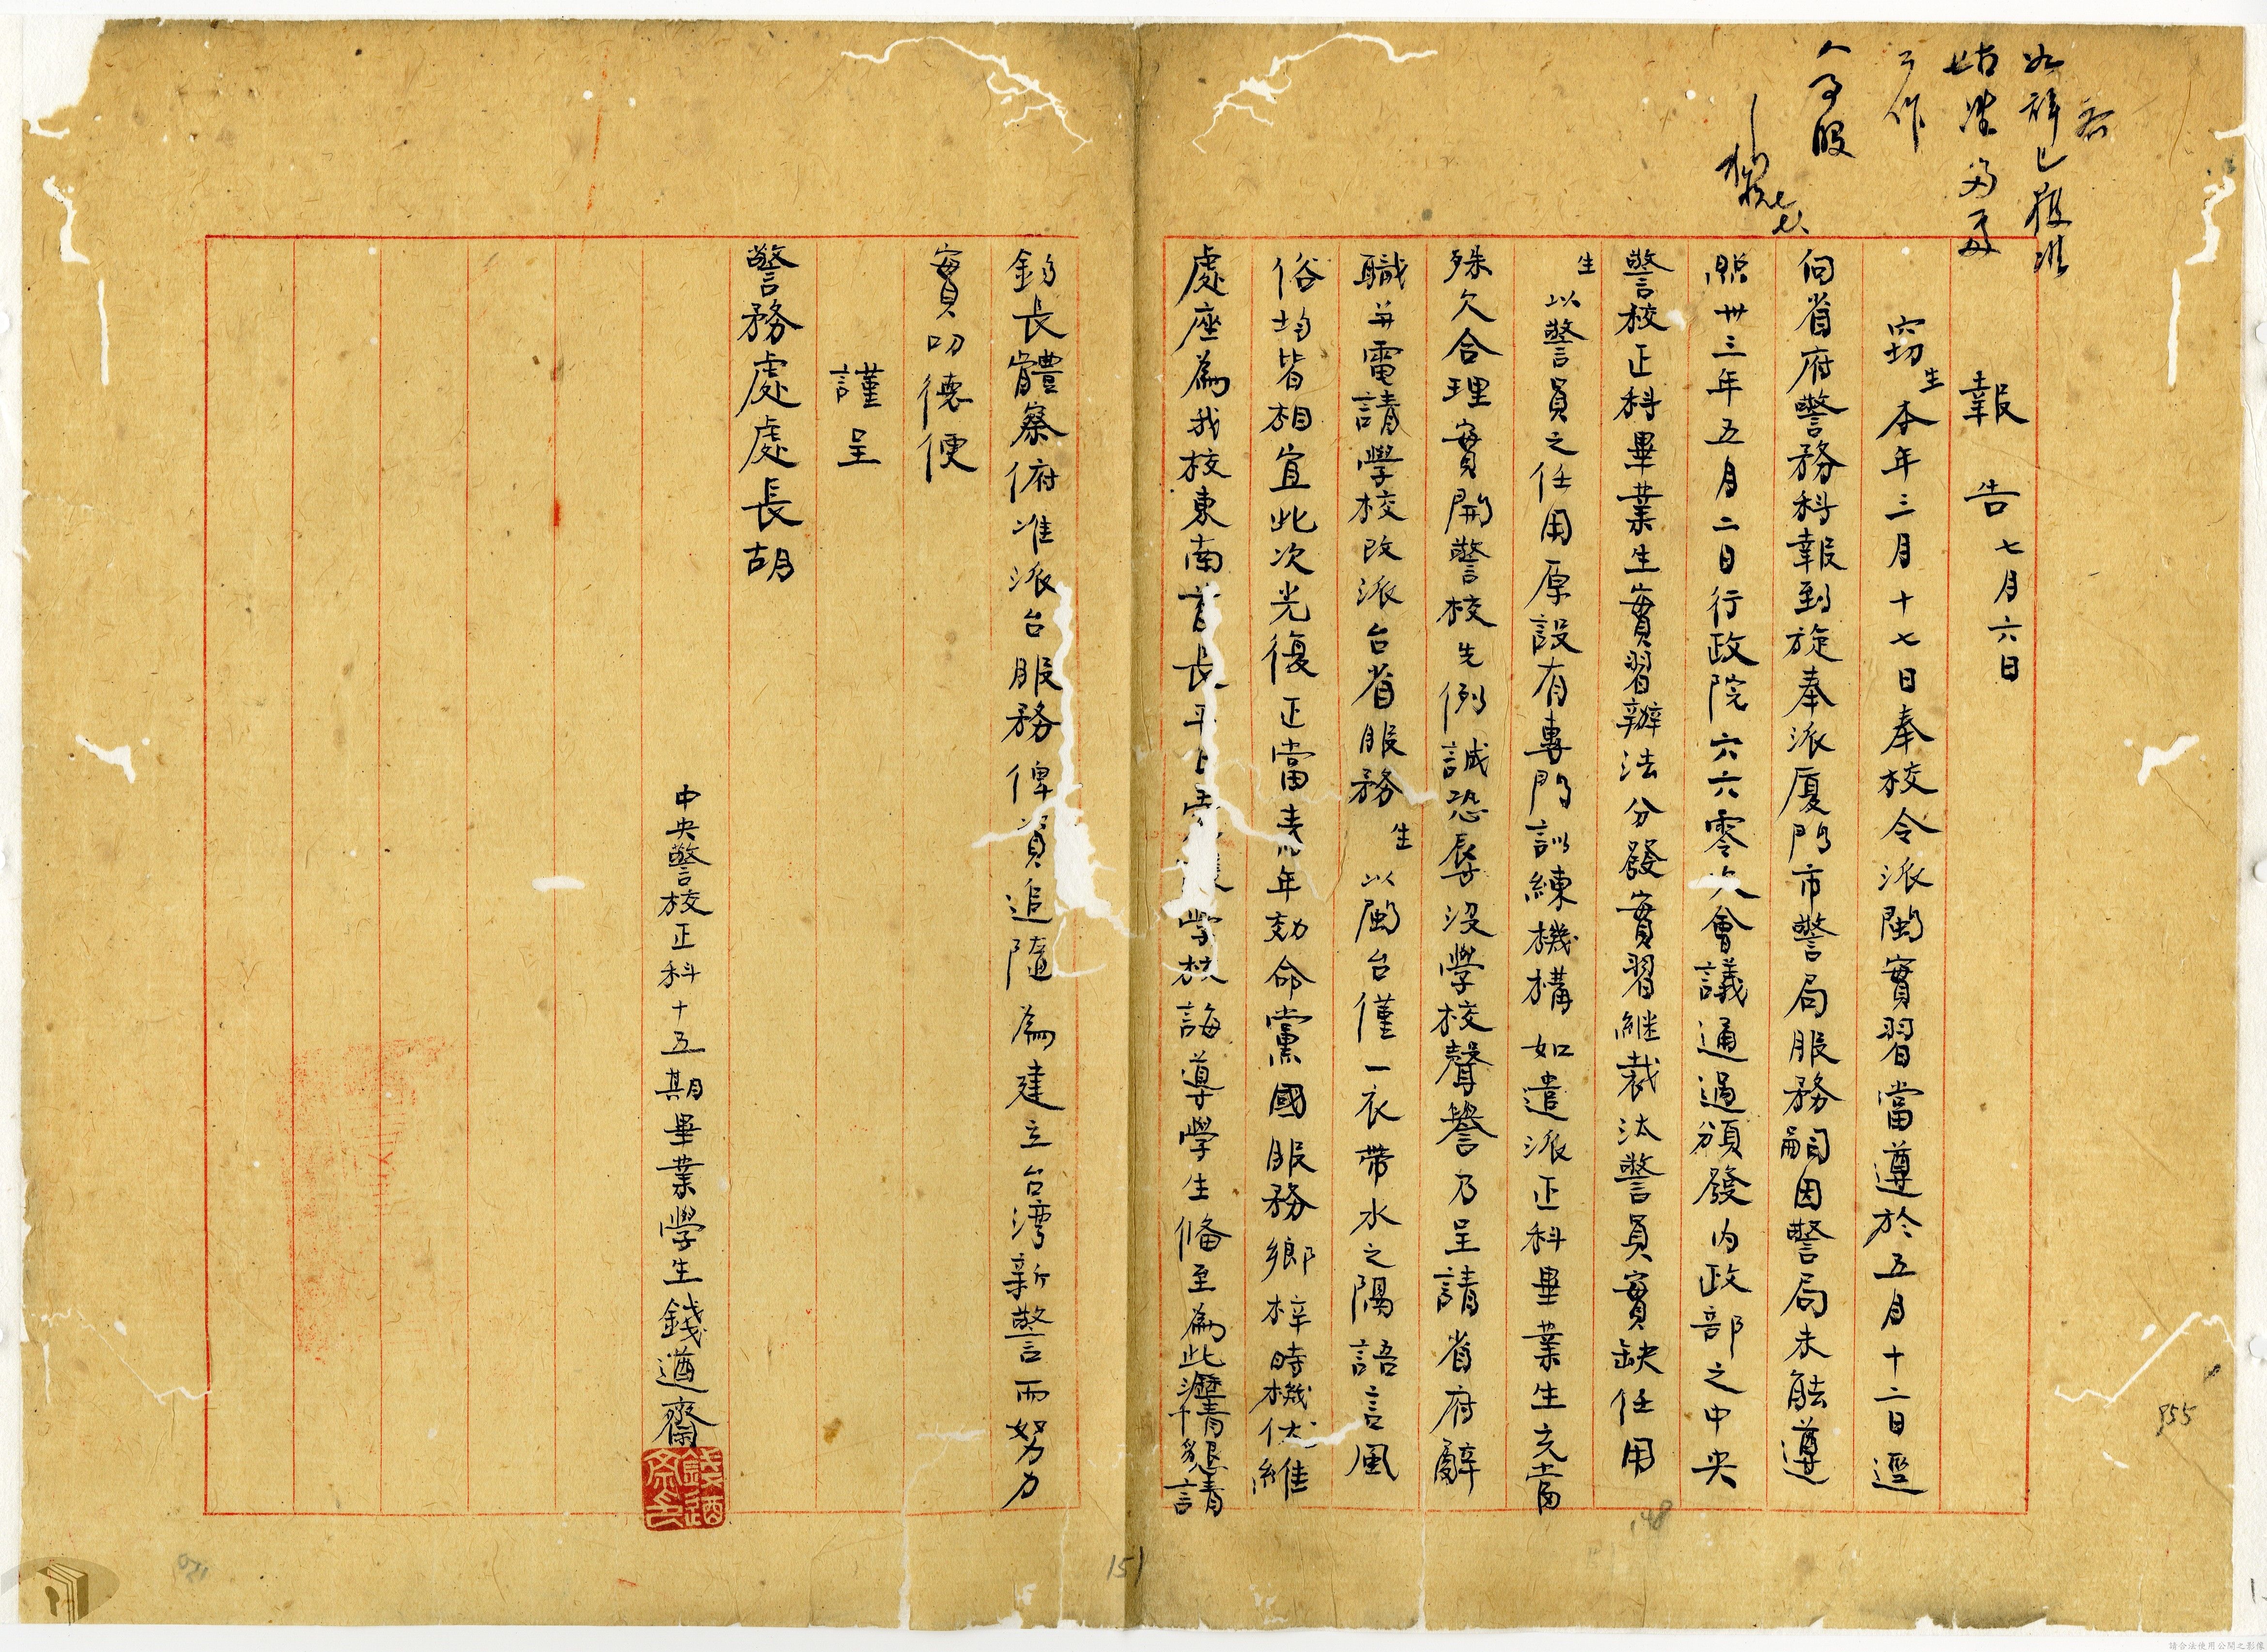 如辭已獲准
報告 七月六日
窃生本年三月十七日奉校令派閩實習當遵於五月十二日逕
向省府警務科報到旋奉派厦門市警局服務嗣因警局未能遵
照卅三年五月二日行政院六六零次會議通過頒發内政部之中央
警校正科畢業生實習辦法分發實習継裁汰警員實缺任用
生以警員之任用原設有專門訓練機構如遣派正科畢業生充當
殊欠合理實開警校先例誠恐辱没學校聲譽乃呈請省府辭
職并電請學校改派台省服務生以閩台僅一衣帶水之隔語言風
俗均皆相宜此次光復正當青年効命黨國服務鄉梓時機伏維
處座為我校東南首長平日愛護學校誨導學生俻至為此瀝情懇請
鈞長體察俯准派台服務俾資追隨為建立台灣新警而努力
實叨德便
謹呈
警務處處長胡
中央警校正科十五期畢業學生錢遵齋
955
148
151
請合法使用公開之影像